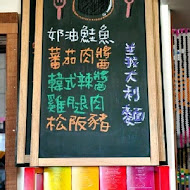 奶油鮭魚
蕃茄肉醬
韓式辣醬
雞腿肉
松阪豬
義大利麵